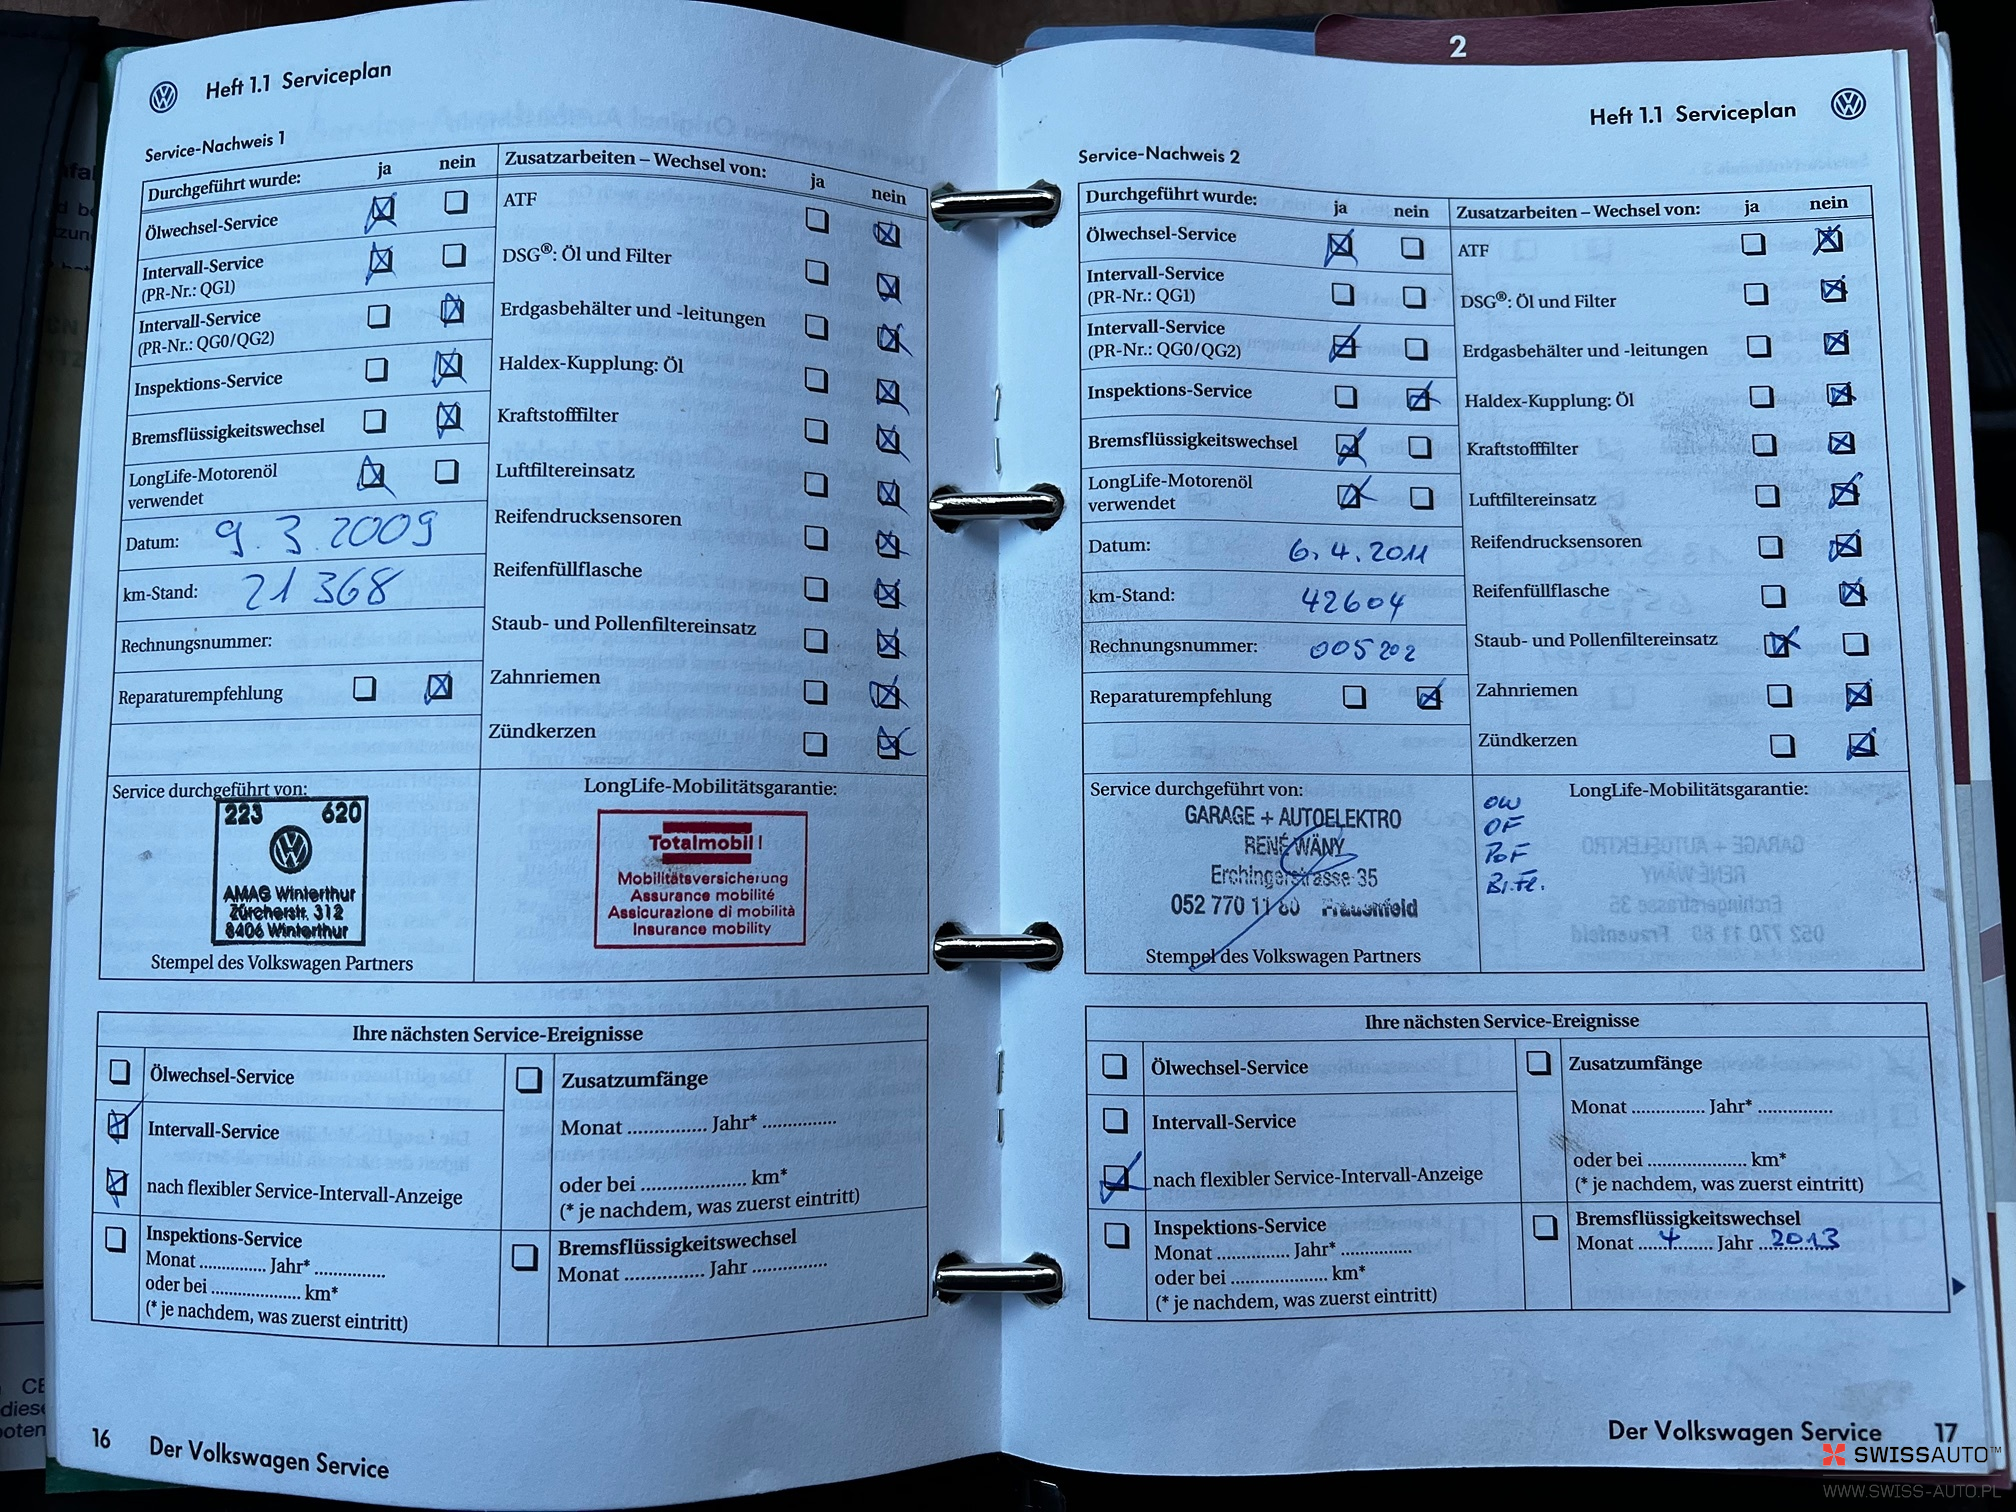 2
Heft 1.1 Serviceplan
Service-Nachweis 1
Durchgeführt wurde: ja nein
Ölwechsel-Service
Intervall-Service
(PR-Nr.: QG1)
Intervall-Service
(PR-Nr.: QG0/QG2)
Inspektions-Service
Bremsflüssigkeitswechsel
LongLife-Motorenöl
verwendet
Datum: 9.3.2009
km-Stand: 21368
Rechnungsnummer:
Reparaturempfehlung
Zusatzarbeiten – Wechsel von: ja nein
ATF
DSG®: Öl und Filter
Erdgasbehälter und -leitungen
Haldex-Kupplung: Öl
Kraftstofffilter
Luftfiltereinsatz
Reifendrucksensoren
Reifenfüllflasche
Staub- und Pollenfiltereinsatz
Zahnriemen
Zündkerzen
Service durchgeführt von:
223 620
AMAG Winterthur
Zürcherstr. 312
8406 Winterthur
Stempel des Volkswagen Partners
LongLife-Mobilitätsgarantie:
Totalmobil!
Mobilitätsversicherung
Assurance mobilité
Assicurazione di mobilità
Insurance mobility
Ihre nächsten Service-Ereignisse
Ölwechsel-Service
Intervall-Service
nach flexibler Service-Intervall-Anzeige
Inspektions-Service
Monat ............. Jahr* .............
oder bei .................. km*
(* je nachdem, was zuerst eintritt)
Zusatzumfänge
Monat ............... Jahr* ..............
oder bei .................... km*
(* je nachdem, was zuerst eintritt)
Bremsflüssigkeitswechsel
Monat ............... Jahr ..............
16 Der Volkswagen Service
Heft 1.1 Serviceplan
Service-Nachweis 2
Durchgeführt wurde: ja nein
Ölwechsel-Service
Intervall-Service
(PR-Nr.: QG1)
Intervall-Service
(PR-Nr.: QG0/QG2)
Inspektions-Service
Bremsflüssigkeitswechsel
LongLife-Motorenöl
verwendet
Datum: 6.4.2011
km-Stand: 42604
Rechnungsnummer: 005202
Reparaturempfehlung
Zusatzarbeiten – Wechsel von: ja nein
ATF
DSG®: Öl und Filter
Erdgasbehälter und -leitungen
Haldex-Kupplung: Öl
Kraftstofffilter
Luftfiltereinsatz
Reifendrucksensoren
Reifenfüllflasche
Staub- und Pollenfiltereinsatz
Zahnriemen
Zündkerzen
Service durchgeführt von:
GARAGE + AUTOELEKTRO
RENÉ WÄNY
Erchingerstrasse 35
052 770 11 80 Frauenfeld
Stempel des Volkswagen Partners
LongLife-Mobilitätsgarantie:
OW
OF
PoF
Br.Fl.
Ihre nächsten Service-Ereignisse
Ölwechsel-Service
Intervall-Service
nach flexibler Service-Intervall-Anzeige
Inspektions-Service
Monat .............. Jahr* ..............
oder bei ................... km*
(* je nachdem, was zuerst eintritt)
Zusatzumfänge
Monat .............. Jahr* ..............
oder bei .................... km*
(* je nachdem, was zuerst eintritt)
Bremsflüssigkeitswechsel
Monat 4 Jahr 2013
Der Volkswagen Service 17
SWISSAUTO™
WWW.SWISS-AUTO.PL